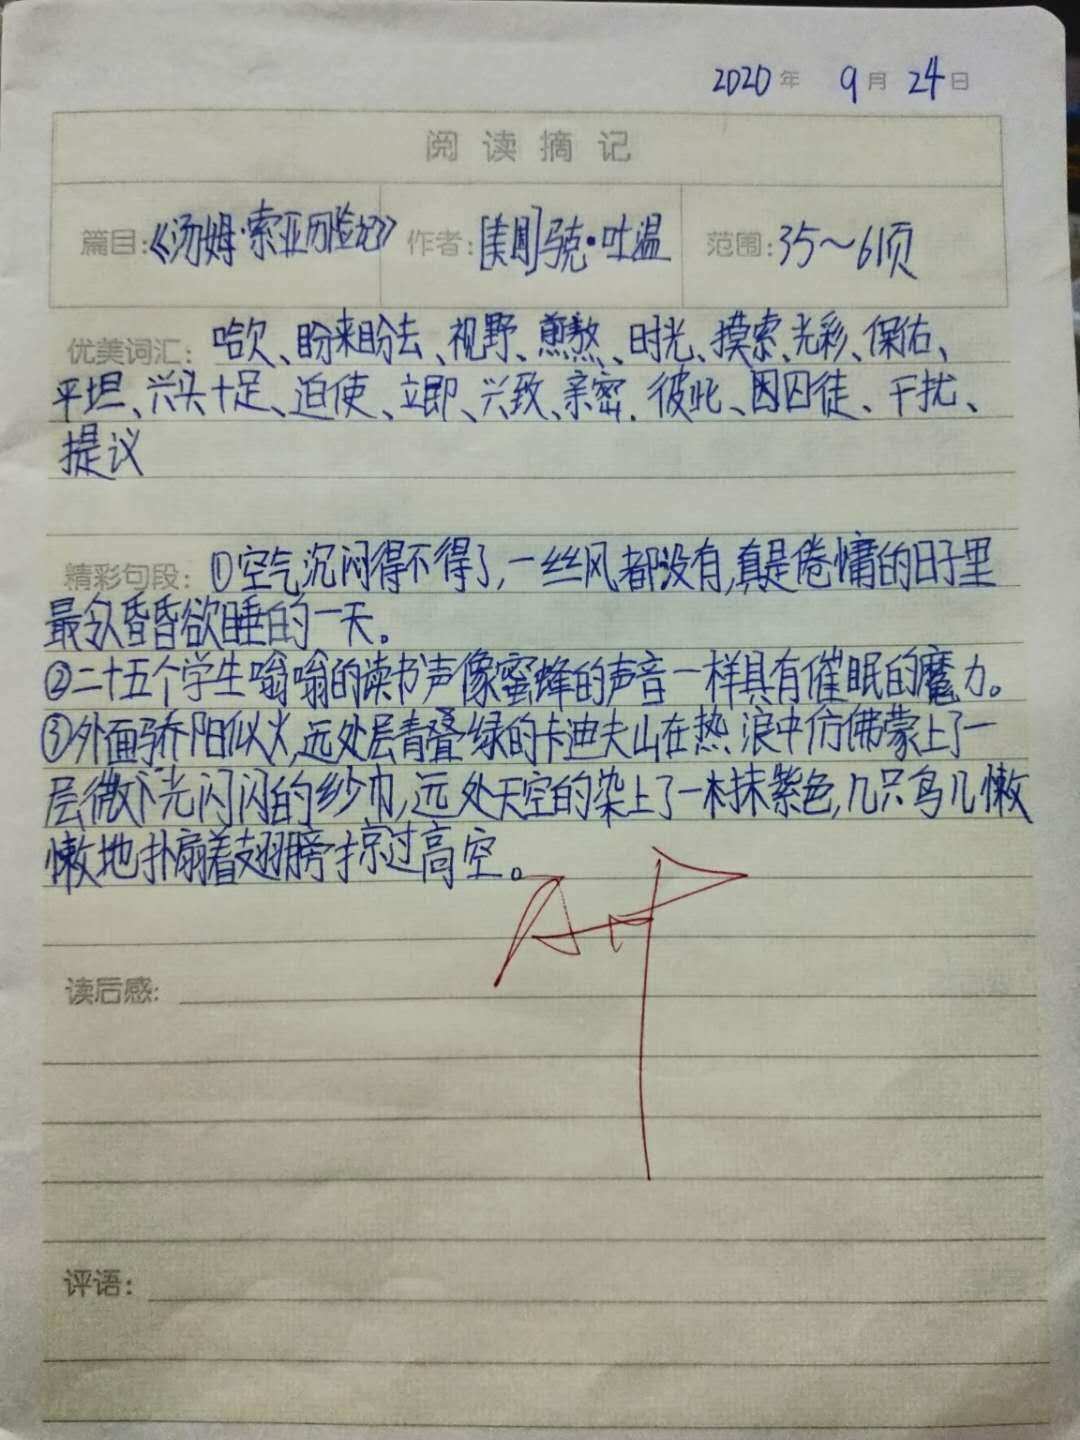 2020年 9月 24日
阅读摘记
篇目:《汤姆·索亚历险记》 作者:[美国]马克·吐温 范围:35~61页
优美词汇: 哈欠、盼来盼去、视野、煎熬、时光、摸索、光彩、保佑、
平坦、兴头十足、迫使、立即、兴致、亲密、彼此、困囚徒、干扰、
提议
精彩句段: ①空气沉闷得不得了,一丝风都没有,真是倦慵的日子里
最令人昏昏欲睡的一天。
②二十五个学生嗡嗡的读书声像蜜蜂的声音一样具有催眠的魔力。
③外面骄阳似火,远处层青叠绿的卡迪夫山在热浪中仿佛蒙上了一
层微下光闪闪的纱巾,远处天空的染上了一木抹紫色,几只鸟儿懒
懒地扑扇着翅膀掠过高空。
读后感:
评语: